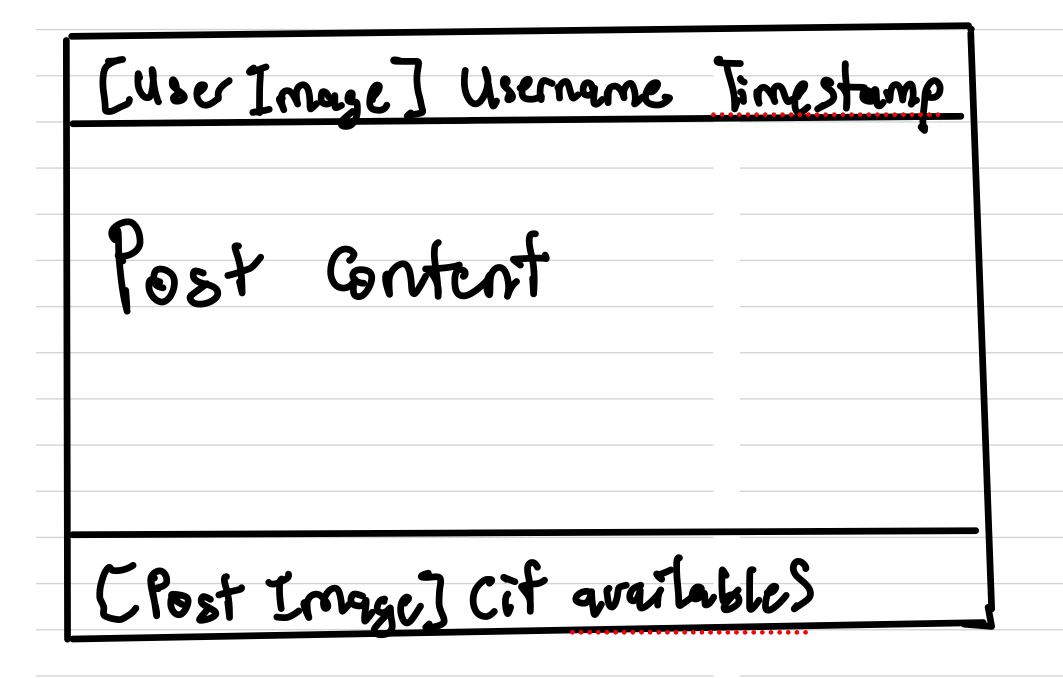 [User Image] Username Timestamp
Post Content
[Post Image] (if available)